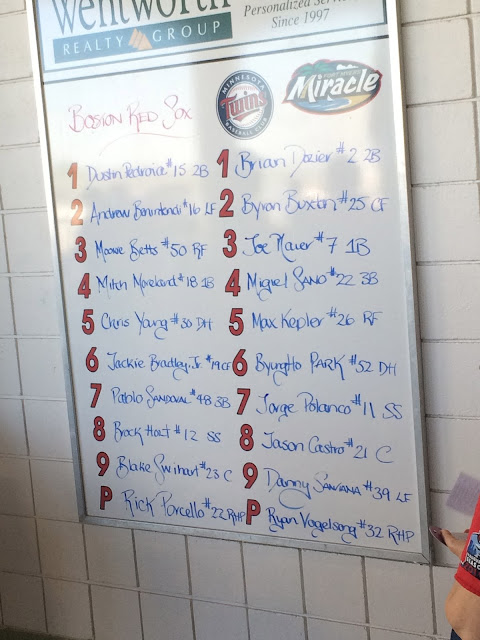 Wentworth
REALTY GROUP
Personalized Serv
Since 1997
MINNESOTA
Twins
BASEBALL CLUB
FORT MYERS
Miracle
BOSTON RED SOX
1 Dustin Pedroia #15 2B
2 Andrew Benintendi #16 LF
3 Mookie Betts #50 RF
4 Mitch Moreland #18 1B
5 Chris Young #30 DH
6 Jackie Bradley, Jr. #19 CF
7 Pablo Sandoval #48 3B
8 Brock Holt #12 SS
9 Blake Swihart #23 C
P Rick Porcello #22 RHP
1 Brian Dozier #2 2B
2 Byron Buxton #25 CF
3 Joe Mauer #7 1B
4 Miguel SANO #22 3B
5 Max Kepler #26 RF
6 ByungHo PARK #52 DH
7 Jorge Polanco #11 SS
8 Jason Castro #21 C
9 Danny SANTANA #39 LF
P Ryan Vogelsong #32 RHP